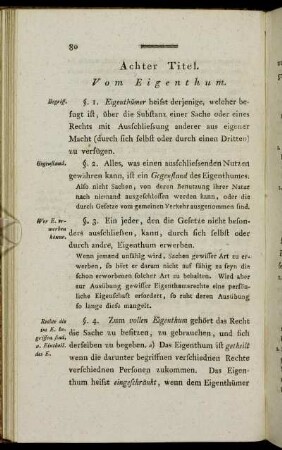 80
Achter Titel.
Vom Eigenthum.
Begriff. §. 1. Eigenthümer heifst derjenige, welcher be-
fugt ist, über die Substanz einer Sache oder eines
Rechts mit Ausschliefsung anderer aus eigner
Macht (durch sich selbst oder durch einen Dritten)
zu verfügen.
Gegenstand. §. 2. Alles, was einen ausschliefsenden Nutzen
gewähren kann, ist ein Gegenstand des Eigenthumes.
Also nicht Sachen, von deren Benutzung ihrer Natur
nach niemand ausgeschlossen werden kann, oder die
durch Gesetze vom gemeinen Verkehr ausgenommen sind.
Wer E. er-
werben
könne.
§. 3. Ein jeder, den die Gesetze nicht beson-
ders ausschliefsen, kann, durch sich selbst oder
durch andre, Eigenthum erwerben.
Wenn jemand unfähig wird, Sachen gewisser Art zu er-
werben, so hört er darum nicht auf fähig zu seyn die
schon erworbenen solcher Art zu besitzen; wird aber
zur Ausübung gewisser Eigenthumsrechte eine persön-
liche Eigenschaft erfodert, so ruht deren Ausübung
so lange diese mangelt.
Rechte die
im E. be-
griffen sind,
u. Eintheil.
des E.
§. 4. Zum vollen Eigenthum gehört das Recht
die Sache zu besitzen, zu gebrauchen, und sich
derselben zu begeben. a) Das Eigenthum ist getheilt
wenn die darunter begriffnen verschiednen Rechte
verschiednen Personen zukommen. Das Eigen-
thum heifst eingeschränkt, wenn dem Eigenthümer